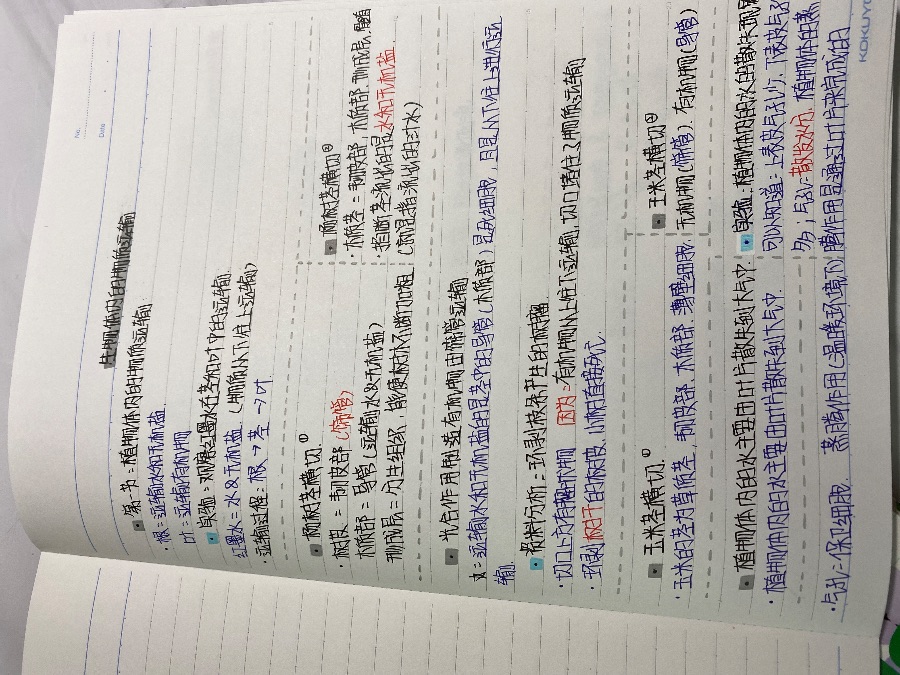 No.
Date
生物体内的物质运输
第一节：植物体内的物质运输
·根：运输水和无机盐
叶：运输有机物
实验：观察红墨水在茎和叶中的运输
红墨水：水&无机盐 （物质从下往上运输）
·运输过程：根→茎→叶
杨树茎横切①
·树皮：韧皮部（筛管）
木质部：导管（运输水&无机盐）
形成层：分生组织，能使树木不断加粗
杨树茎横切②
·木质茎：韧皮部，木质部，形成层，髓
·指断茎流长的是水和无机盐
光合作用制造有机物由筛管运输
运输水和无机盐的是茎中的导管（木质部），是死细胞，且是从下往上进行运
输
资料分析：环剥被条产生的树瘤
·切口上方有瘤状物 因为：有机物从上往下运输，切口堵住了物质运输
·环剥树干的树皮，小树直接死亡
玉米茎横切①
·玉米的茎为草质茎，韧皮部，木质部 薄壁细胞
玉米茎横切②
无机物（筛管），有机物（导管）
植物体内的水主要由叶片散失到大气中
·植物体内的水主要由叶片散失到大气中
实验：植物体内的水的散失现
可以知道：上表皮气孔少，下表皮气孔
多，气孔：散发水分，植物体的蒸
腾作用是通过叶片来完成的
·气孔：保卫细胞 蒸腾作用（温度环境下）
KOKUYO